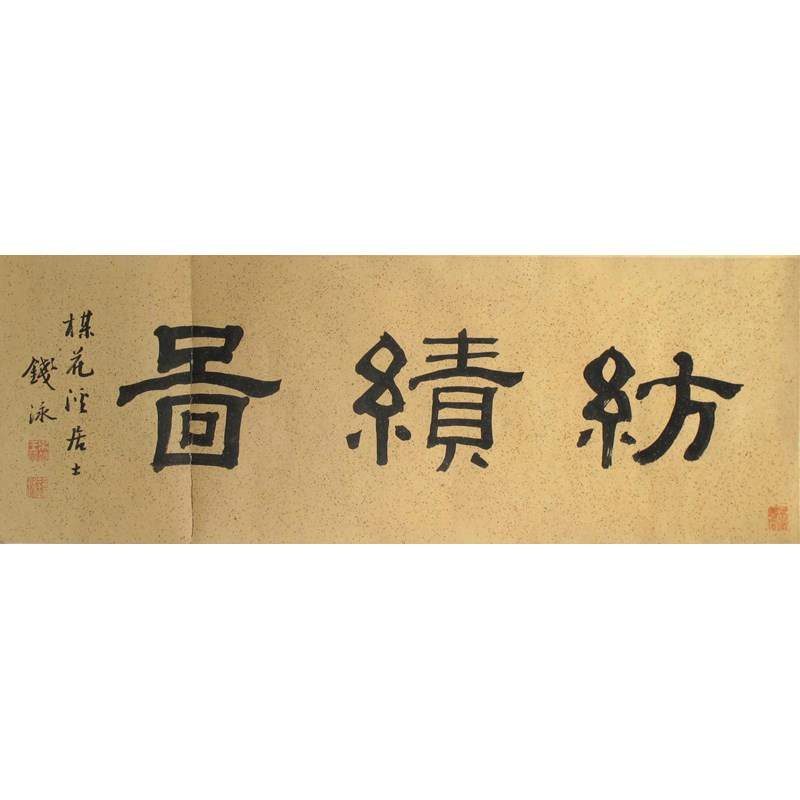 紡績圖
楳花溪居士
錢泳